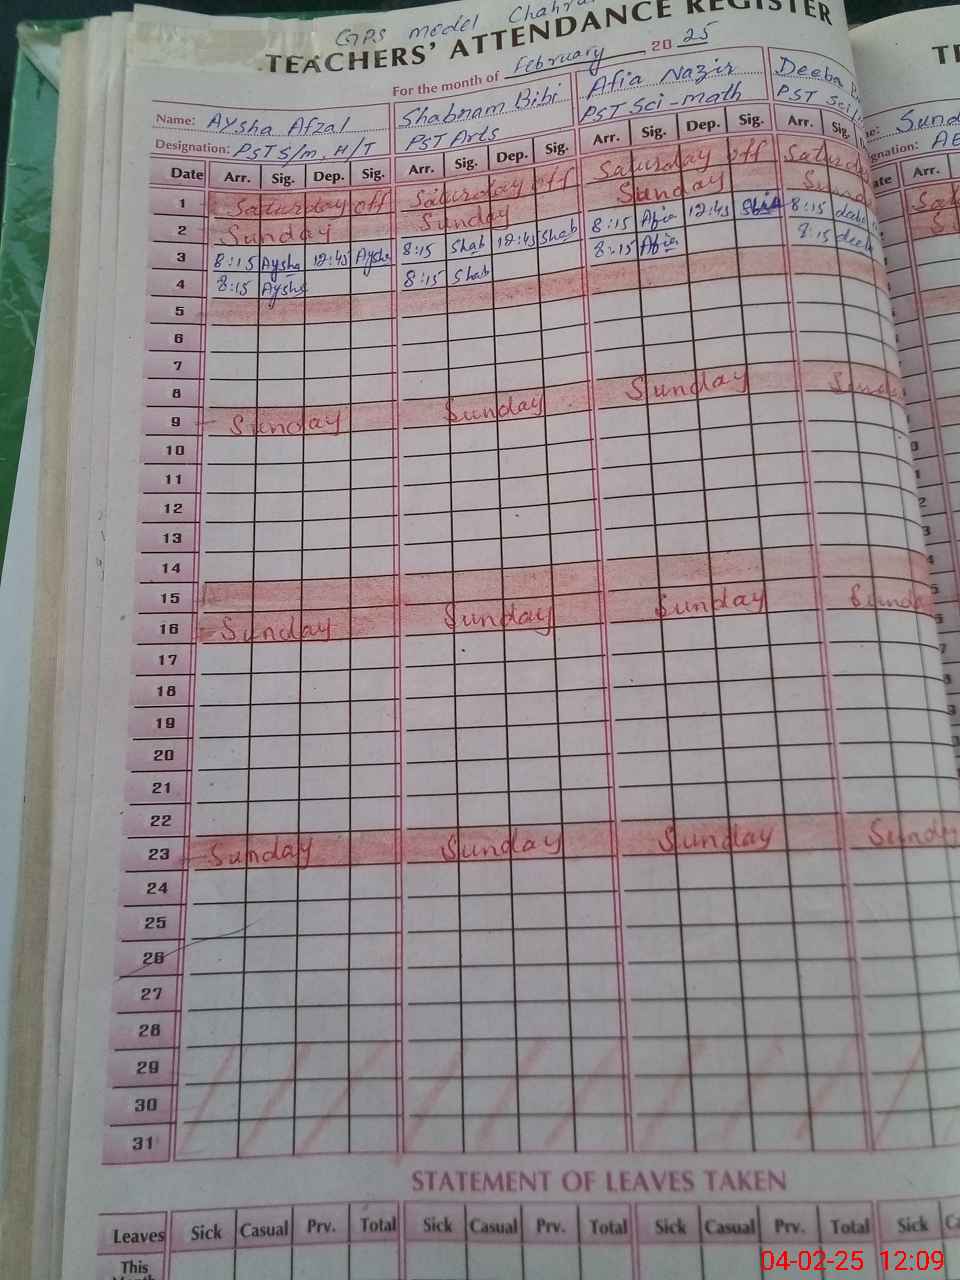 GPS model
TEACHERS' ATTENDANCE REGISTER
For the month of February 2025
Name: Aysha Afzal Shabnam Bibi Afia Nazir Deeba
Designation: PST S/m, H/T PST Arts PST Sci-math PST Sci
Date Arr. Sig. Dep. Sig. Arr. Sig. Dep. Sig. Arr. Sig. Dep. Sig. Arr. Sig.
1 Saturday off Saturday off Saturday off
2 Sunday Sunday Sunday
3 8:15 Aysha 12:45 Aysha 8:15 Shab 12:45 Shab 8:15 Afia 12:45 8:15
4 8:15 Aysha 8:15 Shab 8:15 Afia 8:15
5
6
7
8
9 Sunday Sunday Sunday
10
11
12
13
14
15
16 Sunday Sunday Sunday
17
18
19
20
21
22
23 Sunday Sunday Sunday Sunday
24
25
26
27
28
29
30
31
STATEMENT OF LEAVES TAKEN
Leaves Sick Casual Prv. Total Sick Casual Prv. Total Sick Casual Prv. Total Sick
This
04-02-25 12:09